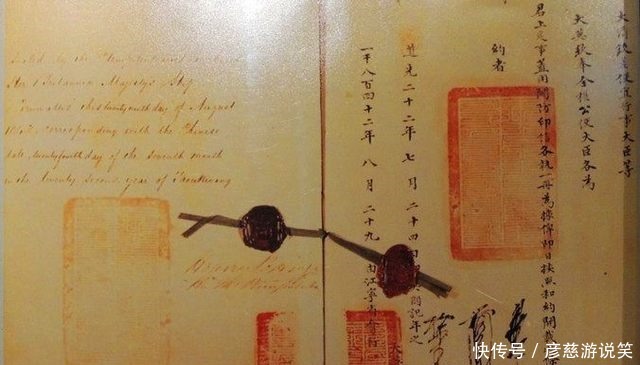 by the Plenipotentiaries
Her Britannic Majesty's Ship
Cornwallis this twenty ninth day of August
1842, corresponding with the Chinese
date, twenty fourth day of the seventh month
in the twenty second year of Taoukwang
大清欽差便宜行事大臣等
大英欽奉全權公使大臣各為
君上定事蓋用關防印信各執一冊為據俾即日按照和約開載
約者
道光二十二年七月二十四日 英國記年之
一千八百四十二年八月二十九 由江寧省會行
快传号／彦慈游说笑